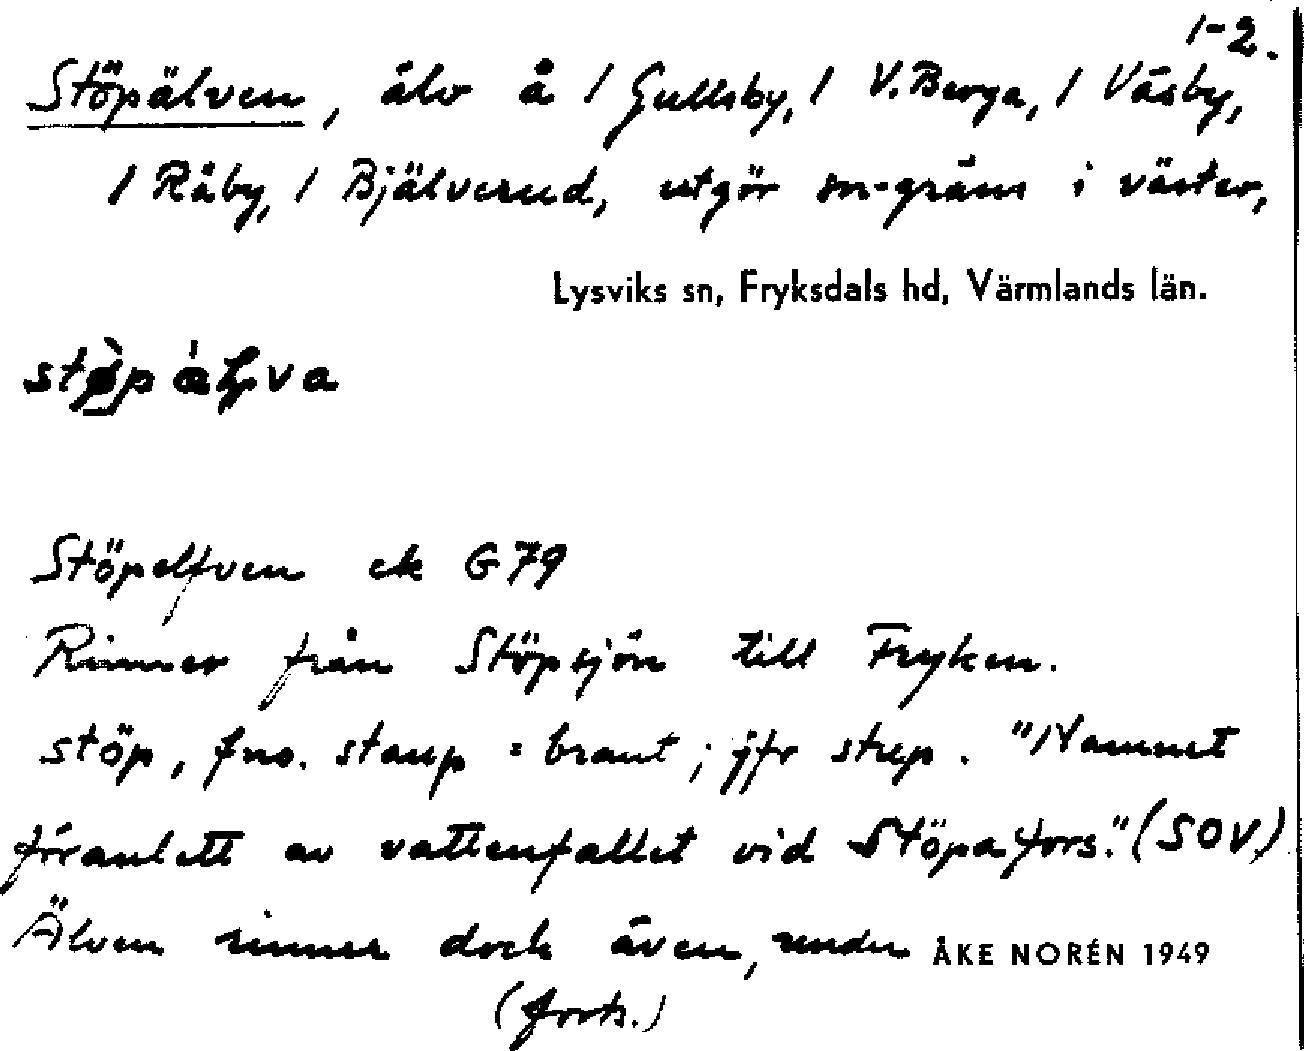 1-2.
Stöpälven, älv å / Gullsby, / V. Berga, / Väsby,
/ Råby, / Bjälverud, utgör sn-gräns i väster,
Lysviks sn, Fryksdals hd, Värmlands län.
Stöpelfven ek G 79
Rinner från Stöpsjön till Fryken.
stöp, fno. staup = brant; jfr stup. "Namnet
föranlett av vattenfallet vid Stöpafors." (SOV)
Älven rinner dock även, under ÅKE NORÉN 1949
(forts.)